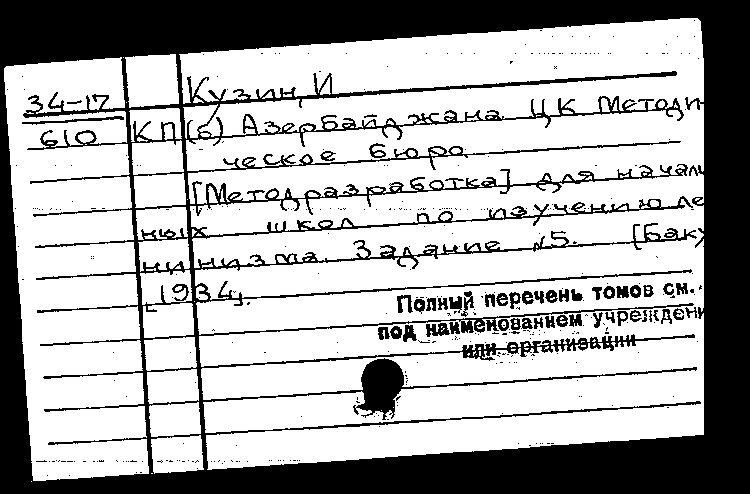 Кузин, И
34-17
610 КП(б) Азербайджана ЦК Методи-
ческое бюро.
[Методразработка] для началь
ных школ по изучению ле
нинизма. Задание №5. [Баку
1934].
Полный перечень томов см.
под наименованием учреждени
или организации